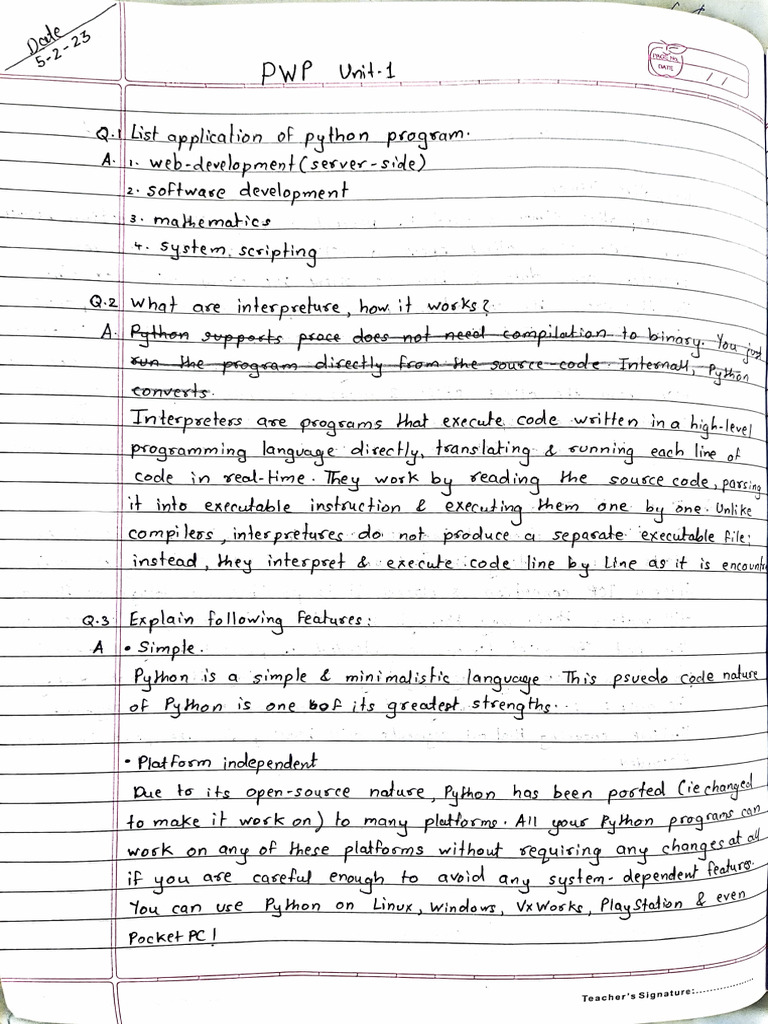 Date
5-2-23
PWP Unit-1
PAGE NO.
DATE
/ /
Q.1 List application of python program.
A. 1. web-development (server-side)
2. software development
3. mathematics
4. system scripting
Q.2 What are interpreture, how it works?
A. Python supports proce does not need compilation to binary. You just
run the program directly from the source-code. Internall, Python
converts.
Interpreters are programs that execute code written in a high-level
programming language directly, translating & running each line of
code in real-time. They work by reading the source code, parsing
it into executable instruction & executing them one by one. Unlike
compilers, interpretures do not produce a separate executable file;
instead, they interpret & execute code line by Line as it is encount
Q.3 Explain following features:
A • Simple.
Python is a simple & minimalistic language. This psuedo code nature
of Python is one of its greatest strengths.
• Platform independent
Due to its open-source nature, Python has been ported (ie changed
to make it work on) to many platforms. All your Python programs can
work on any of these platforms without requiring any changes at all
if you are careful enough to avoid any system-dependent features.
You can use Python on Linux, Windows, VxWorks, PlayStation & even
PocketPC!
Teacher's Signature:................